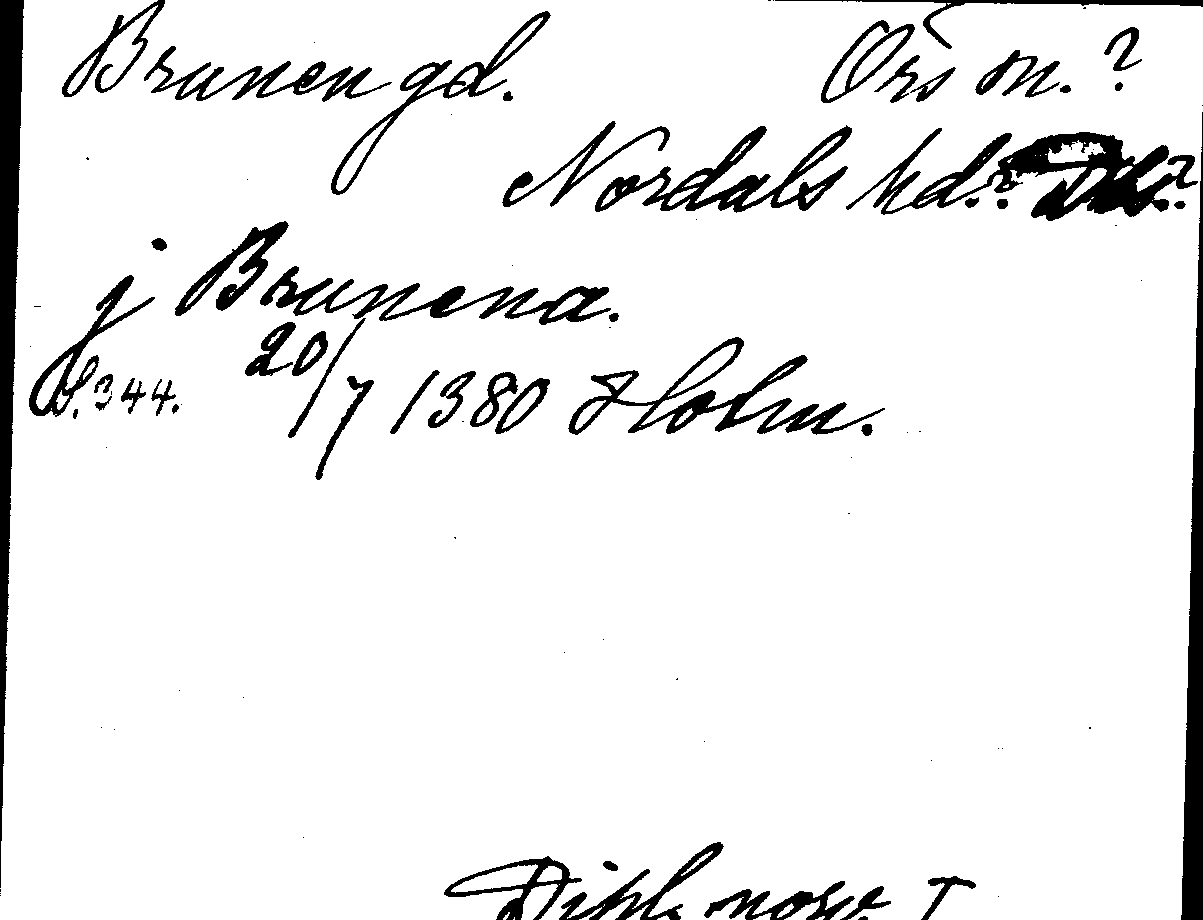 Brunen gd. Örs sn.?
Nordals hd.? Dls.?
j Brunena.
S. 344. 20/7 1380 Holm.
Dipl. norv. I